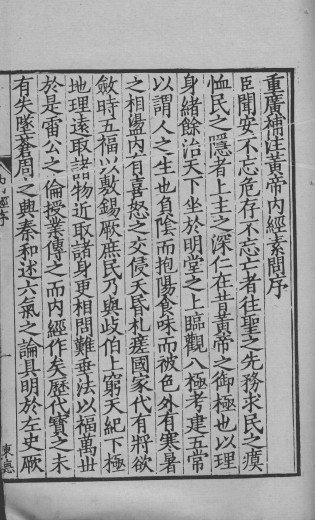 重廣補注黃帝內經素問序
臣聞安不忘危存不忘亡者往聖之先務求民之瘼
恤民之隱者上主之深仁在昔黃帝之御極也以理
身緒餘治天下坐於明堂之上臨觀八極考建五常
以謂人之生也負陰而抱陽食味而被色外有寒暑
之相盪內有喜怒之交侵夭昏札瘥國家代有將欲
斂時五福以敷錫厥庶民乃與岐伯上窮天紀下極
地理遠取諸物近取諸身更相問難垂法以福萬世
於是雷公之倫授業傳之而內經作矣歷代寶之未
有失墜蒼周之興秦和述六氣之論具明於左史厥
內經序